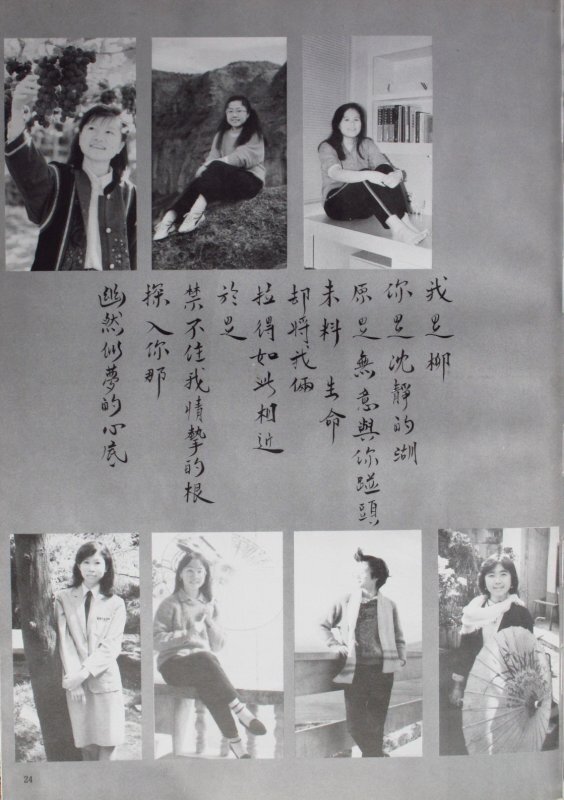 我是柳
你是沈靜的湖
原是無意與你碰頭
未料 生命
却將我倆
拉得如此相近
於是
禁不住我情摯的根
探入你那
幽然似夢的心底
24